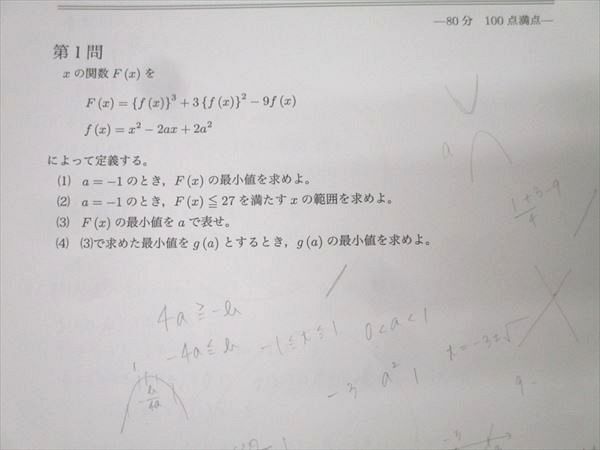 ―80分 100点満点―
第1問
xの関数F(x)を
F(x) = {f(x)}³ + 3{f(x)}² − 9f(x)
f(x) = x² − 2ax + 2a²
によって定義する。
(1) a = −1のとき，F(x)の最小値を求めよ。
(2) a = −1のとき，F(x) ≦ 27を満たすxの範囲を求めよ。
(3) F(x)の最小値をaで表せ。
(4) (3)で求めた最小値をg(a)とするとき，g(a)の最小値を求めよ。
a
1+3-9
4
4a ≧ -b
-4a ≦ b
-1 ≦ x ≦ 1
0 < a < 1
-3 a² 1
9 -